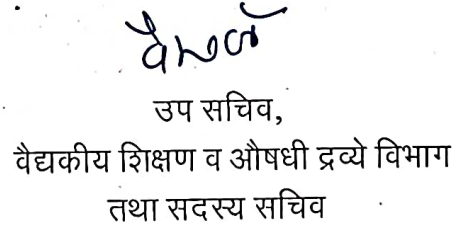 उप सचिव,
वैद्यकीय शिक्षण व औषधी द्रव्ये विभाग
तथा सदस्य सचिव